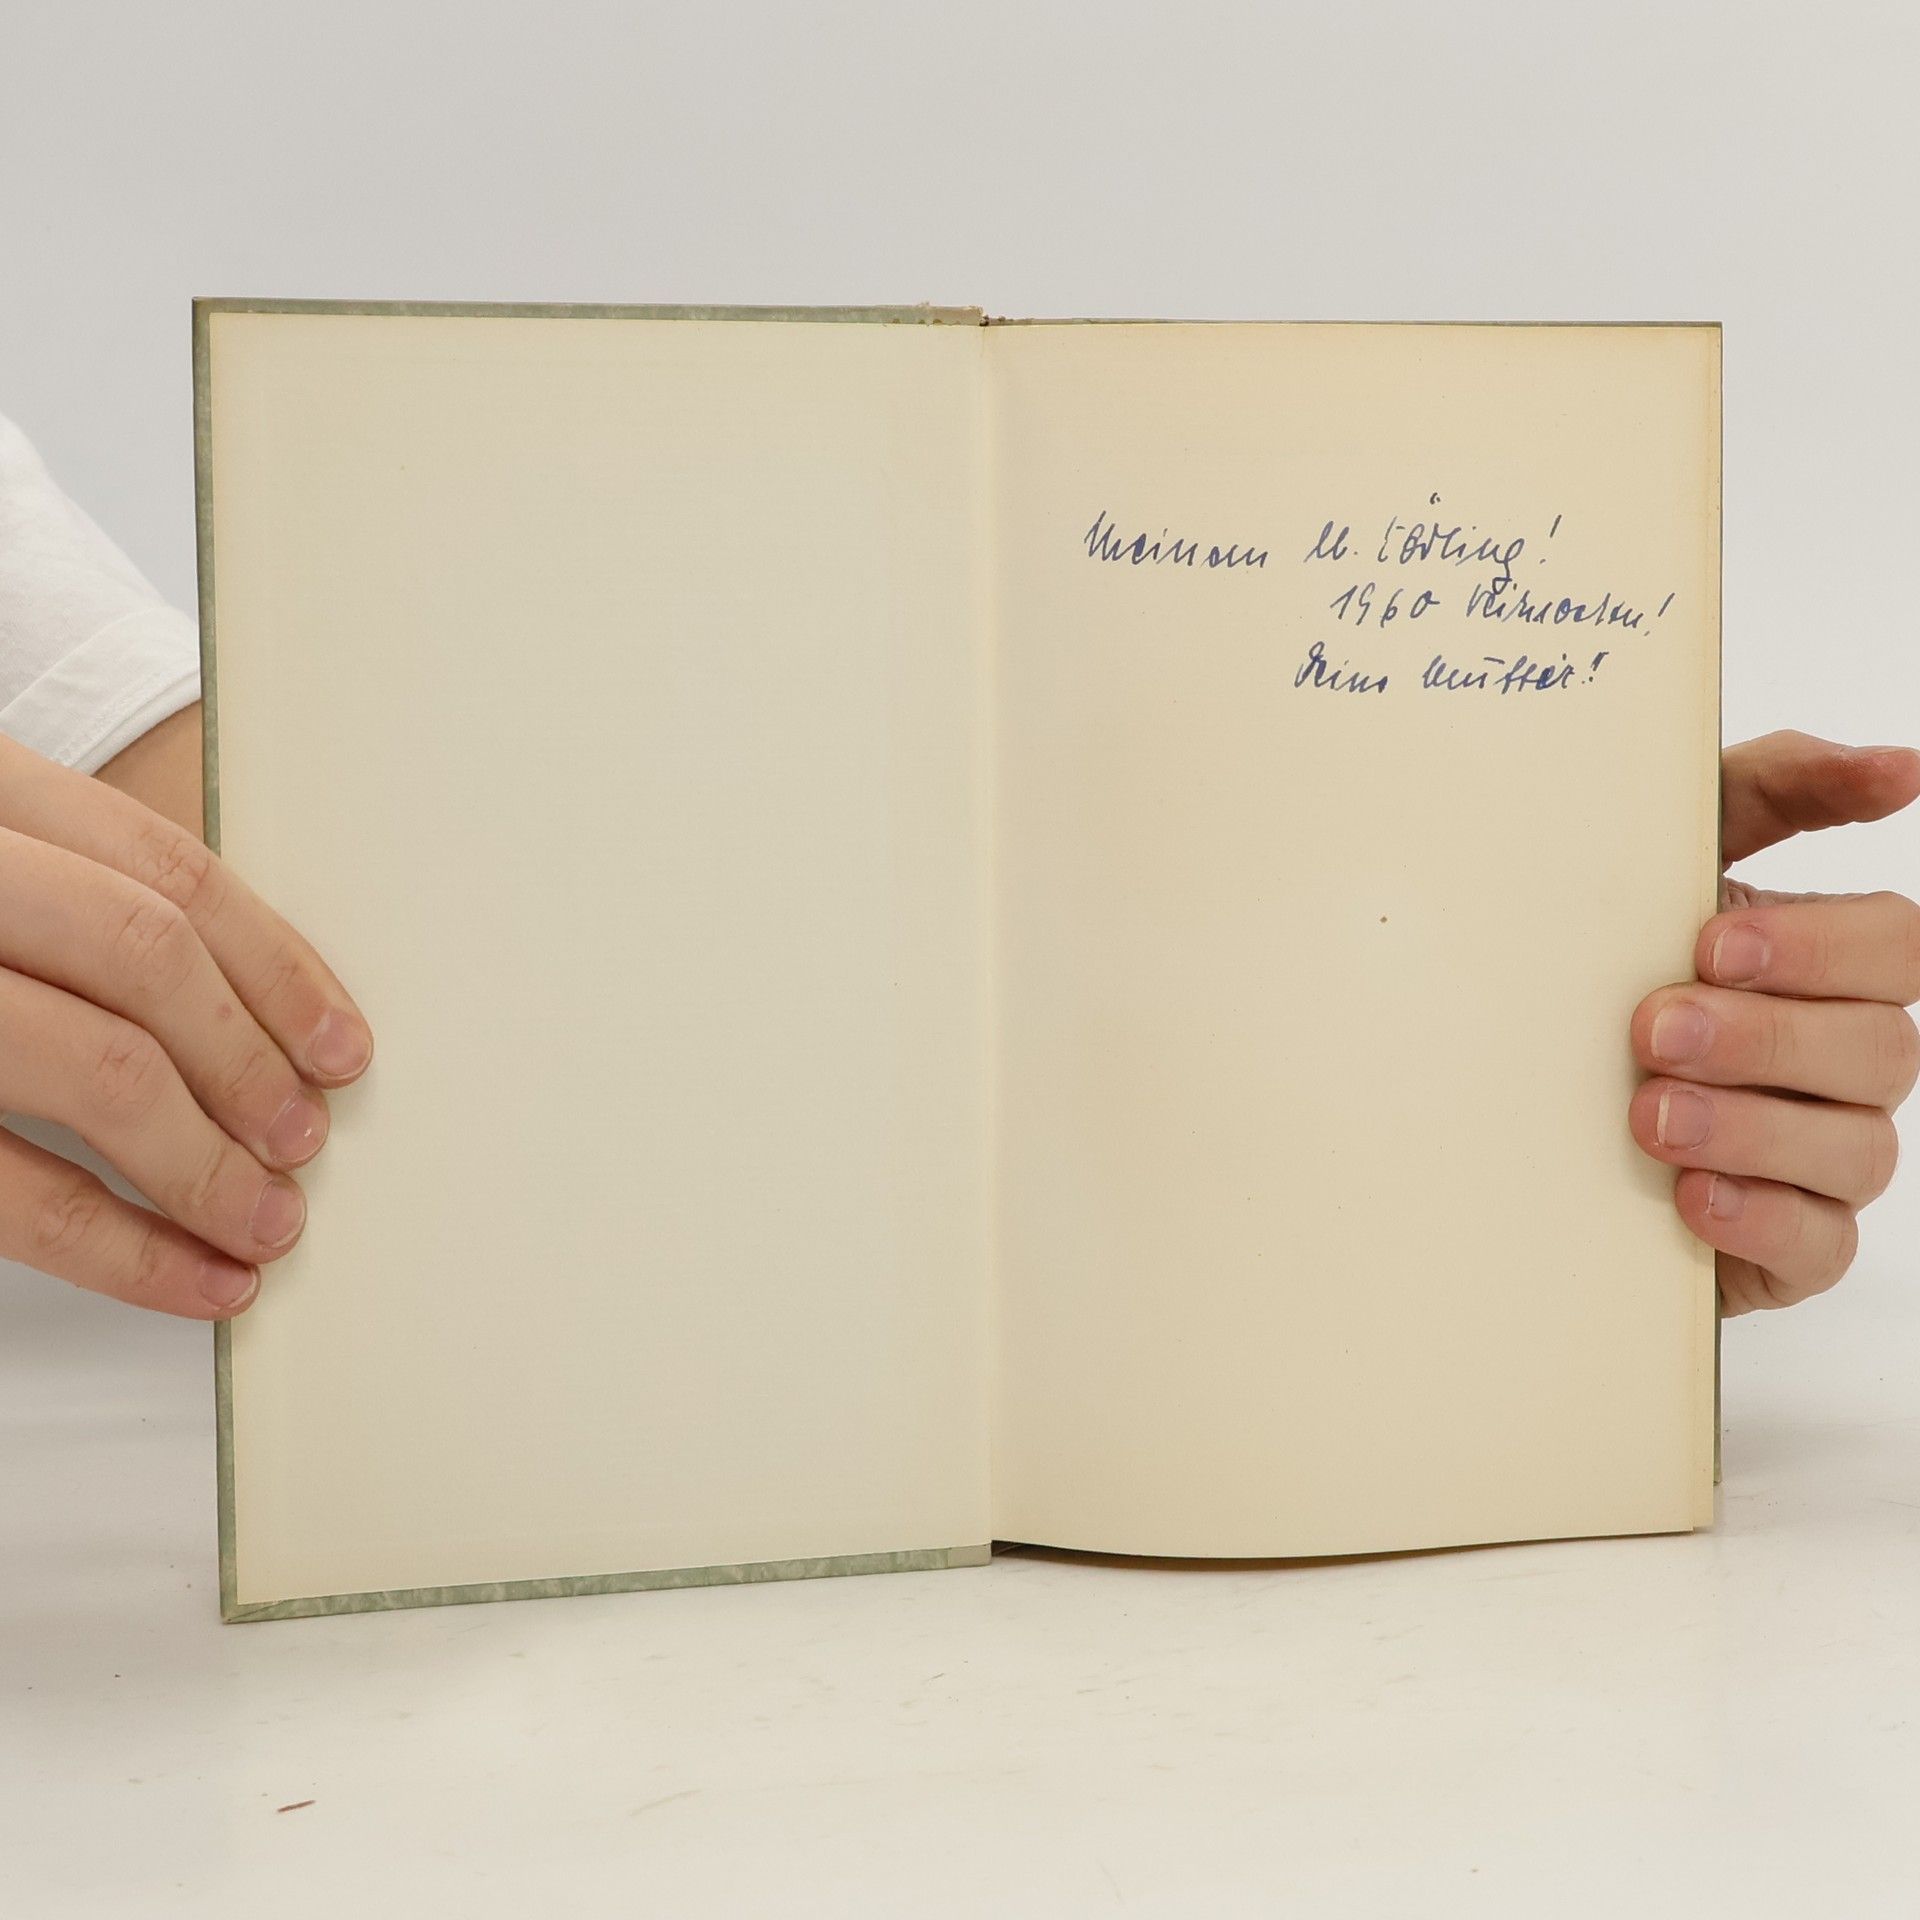 Meinem lb. !
1960 Weihnachten!
Deine Mutter!!